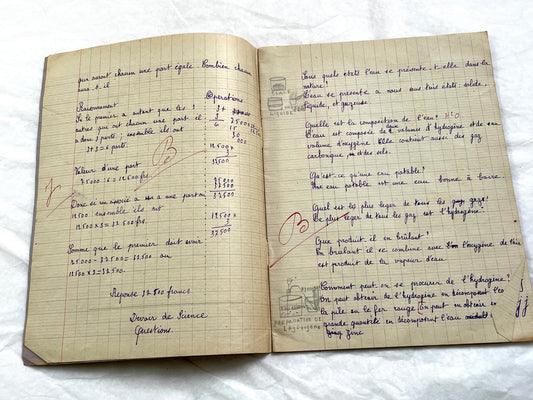 qui auront chacun une part égale. Combien chacun
aura-t-il
Raisonnement
Si le premier a autant que les 3
autres qui ont chacun une part il
a donc 3 parts; ensemble ils ont
3+3=6 parts
Valeur d'une part
75000:6=12500 frs.
Donc si un associé a une part on
12500 ensemble ils ont
12500 x 3 = 37500 frs.
Comme que le premier doit avoir
75000 - 37500 = 37500 ou
12500 x 3 = 37500.
Réponse 37500 francs
Devoir de Science
Questions.
Opérations
3+
3
6
12500
3
37500
75000
37500
37500
12500
3
37500
B
Sous quels états l'eau se présente-t-elle dans la
nature?
L'eau se présente à nous sous trois états: solide,
liquide, et gazeuse
Quelle est la composition de l'eau? H²O
L'eau est composée de 2 volumes d'hydrogène et de un
volume d'oxygène. Elle contient aussi des gaz
carbonique, et des sels.
Qu'est-ce qu'une eau potable?
Une eau potable est une eau bonne à boire
Quel est le plus léger de tous les gaz?
Le plus léger de tous les gaz est l'hydrogène.
Que produit-il en brûlant?
En brûlant il se combine avec l'oxygène de l'air
est produit de la vapeur d'eau.
Comment peut-on se procurer de l'hydrogène?
On peut obtenir de l'hydrogène en décomposant l'eau
la pile ou le fer rouge. On peut en obtenir en
grande quantité en décomposant l'eau
zinc
B
GLACE
LIQUIDE
PREPARATION DE
L'HYDROGENE